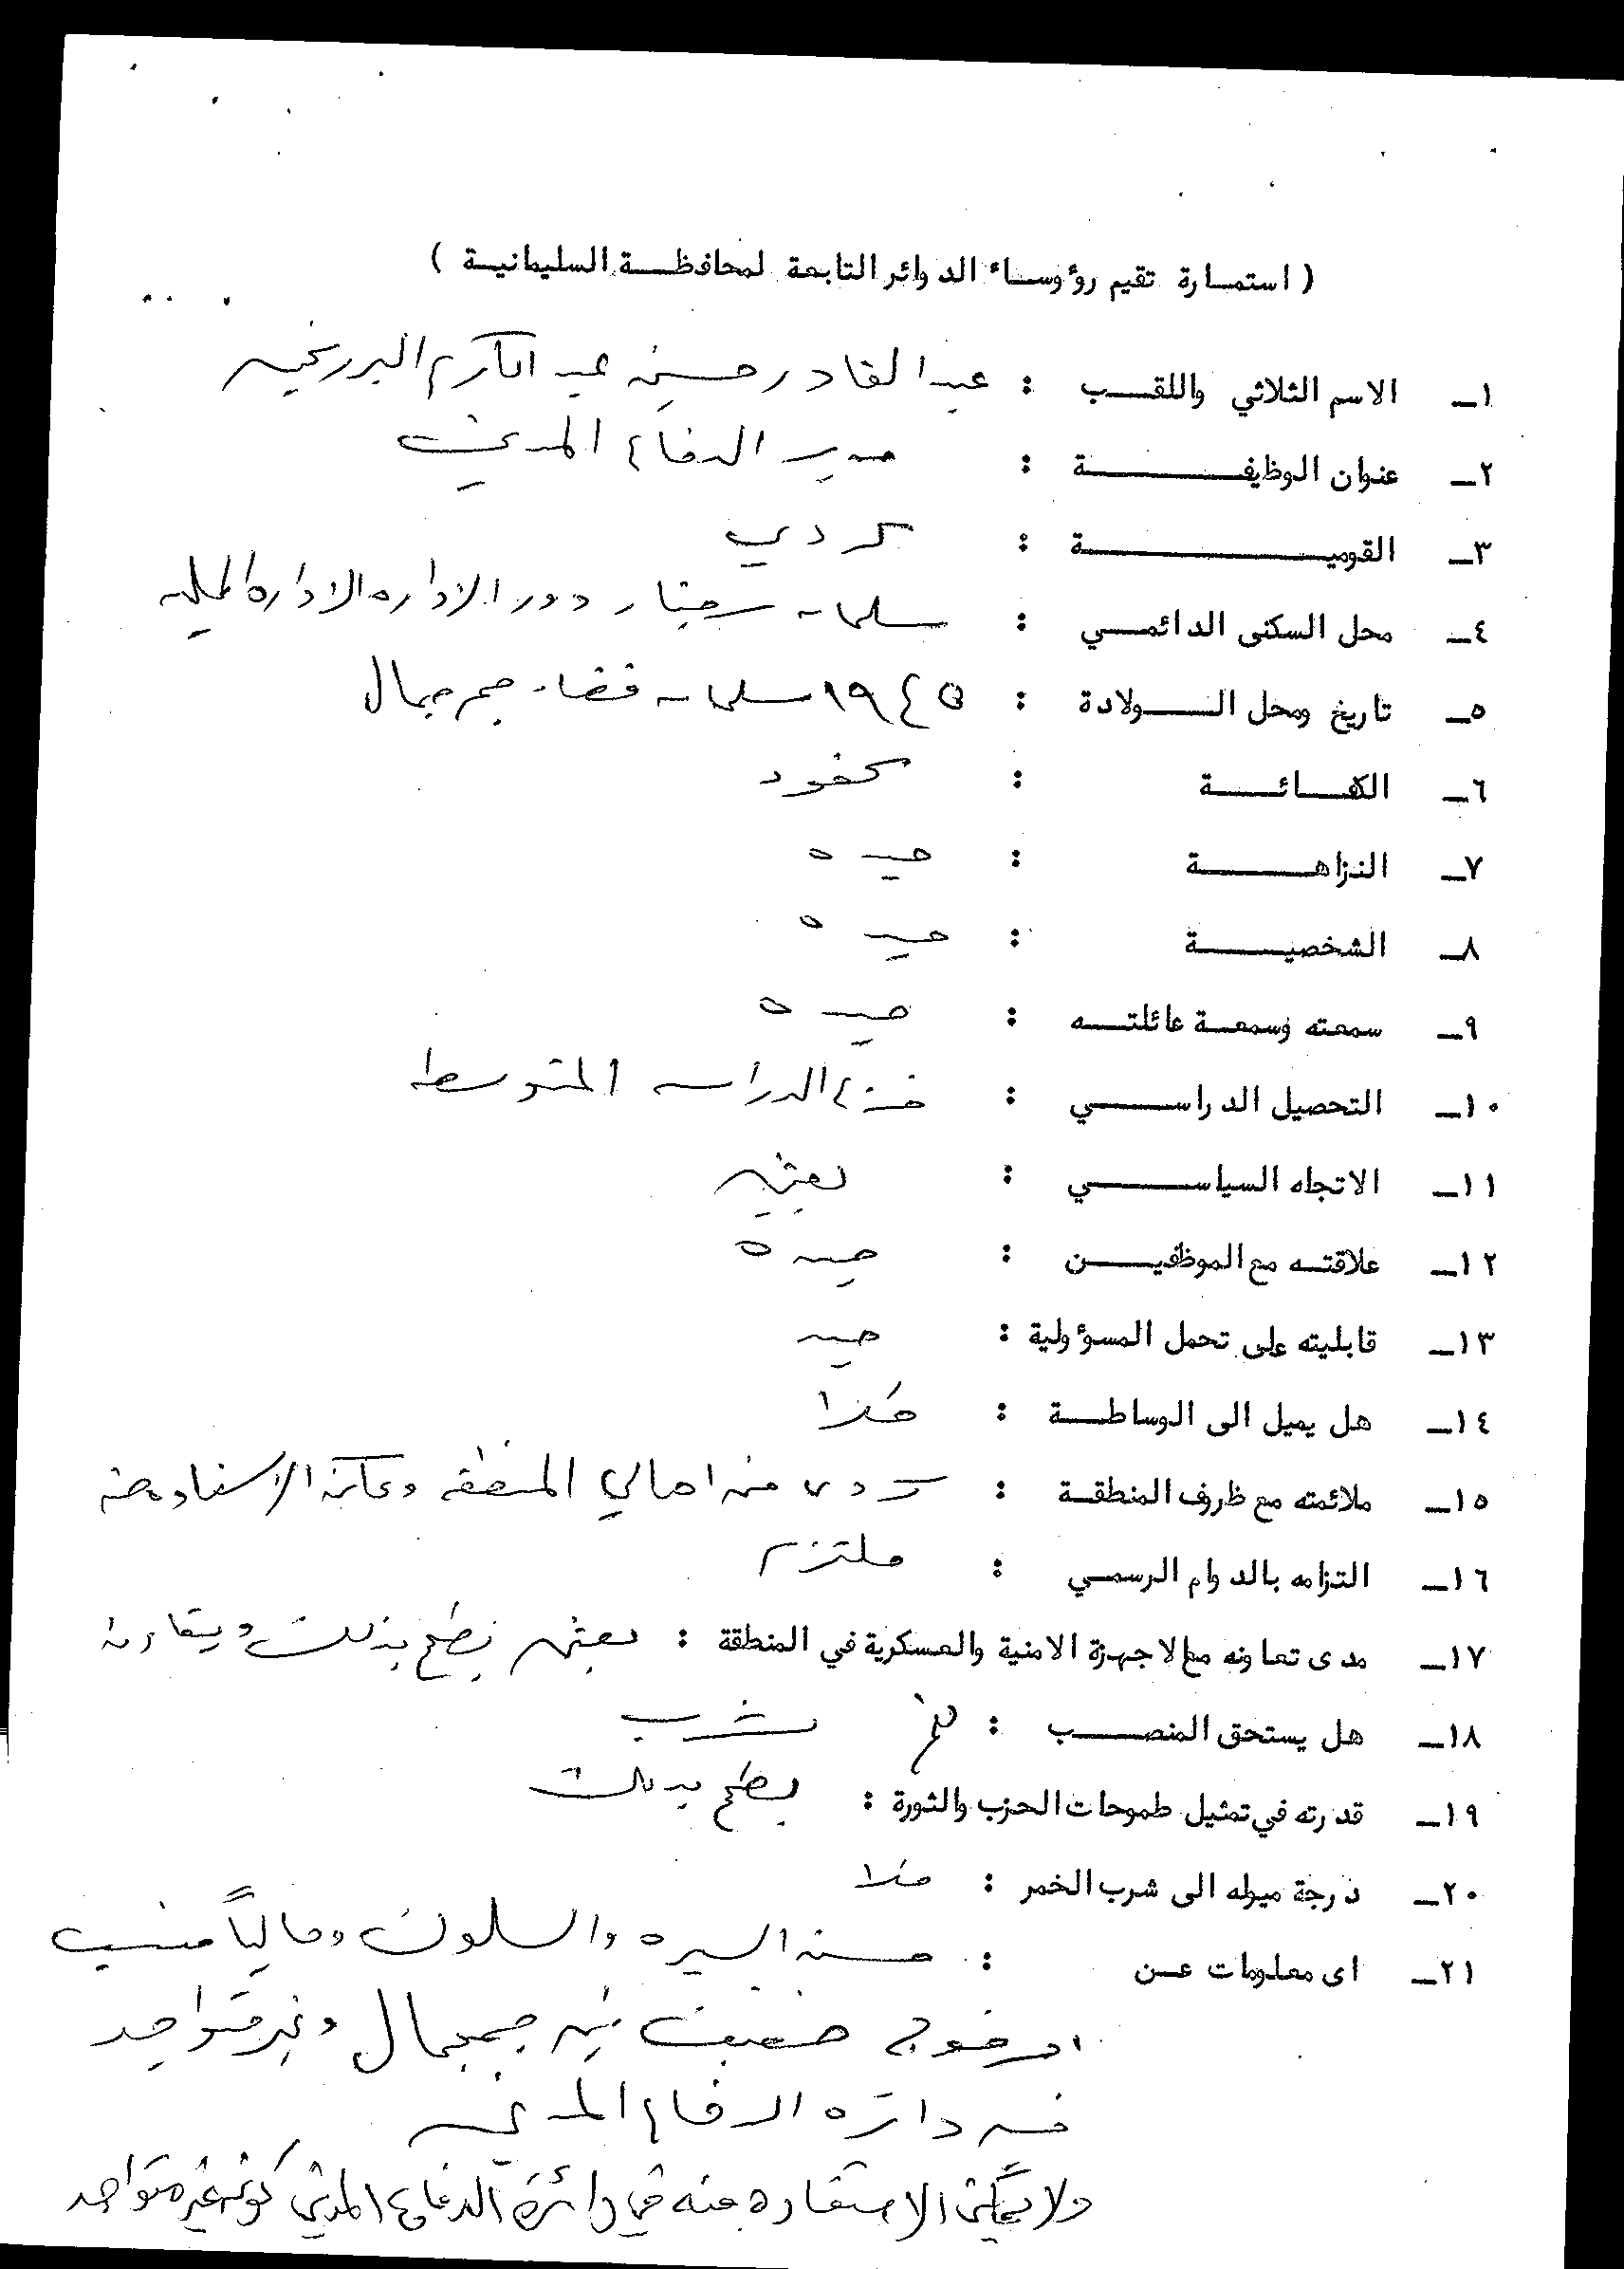 ( استمارة تقيم رؤوساء الدوائر التابعة لمحافظة السليمانية )
١ـ الاسم الثلاثي واللقب : عبد القادر حسين عبد الكريم البرزنجي
٢ـ عنوان الوظيفة : مدير الدفاع المدني
٣ـ القومية : كردي
٤ـ محل السكنى الدائمي : سليمانية سرجنار دور الاداره الاداره المحلية
٥ـ تاريخ ومحل الولادة : ١٩٤٥ سليمانية قضاء جمجمال
٦ـ الكفائة :
٧ـ النزاهة : جيده
٨ـ الشخصية : جيده
٩ـ سمعته وسمعة عائلته : جيده
١٠ـ التحصيل الدراسي : الدراسة المتوسطة
١١ـ الاتجاه السياسي : بعثي
١٢ـ علاقته مع الموظفين : جيده
١٣ـ قابليته على تحمل المسؤولية : جيد
١٤ـ هل يميل الى الوساطة : كلا
١٥ـ ملائمته مع ظروف المنطقة : كردي من اهالي المنطقة ويمكن الاستفاده منه
١٦ـ التزامه بالدوام الرسمي : ملتزم
١٧ـ مدى تعاونه مع الاجهزة الامنية والعسكرية في المنطقة : بعثي يطمح بذلك ويتعاون
١٨ـ هل يستحق المنصب : نعم
١٩ـ قدرته في تمثيل طموحات الحزب والثورة : يطمح بذلك
٢٠ـ درجة ميوله الى شرب الخمر : كلا
٢١ـ اى معلومات عن : حسن السيره والسلوك وحالياً منسب
امر فوج خفيف في جمجمال وغير متواجد
في دائره الدفاع المدني
ولا يمكن الاستفادة منه في دائرة الدفاع المدني كونه غير متواجد